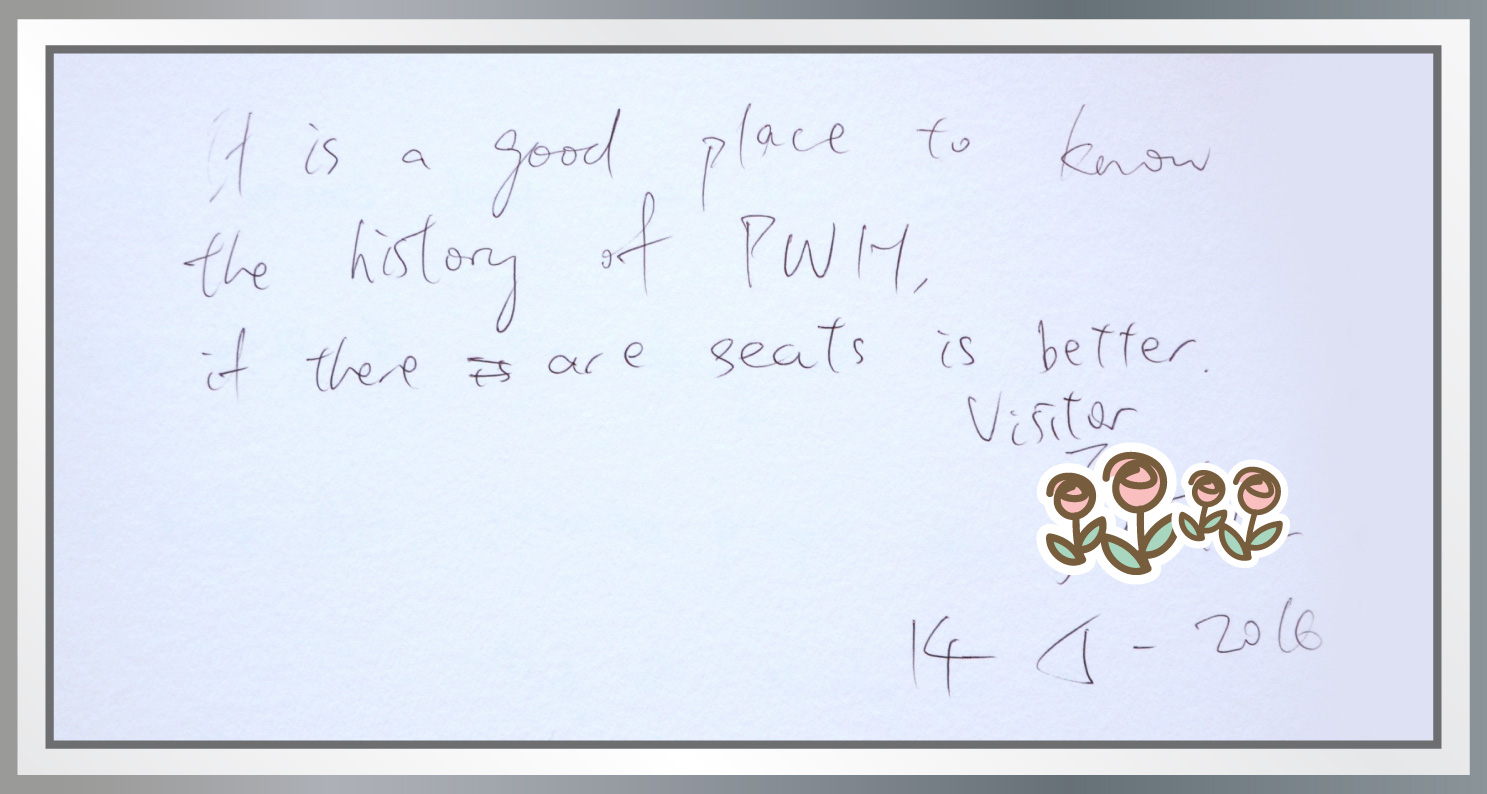 It is a good place to know
the history of PWH,
if there are seats is better.
Visitor
14 - 2016